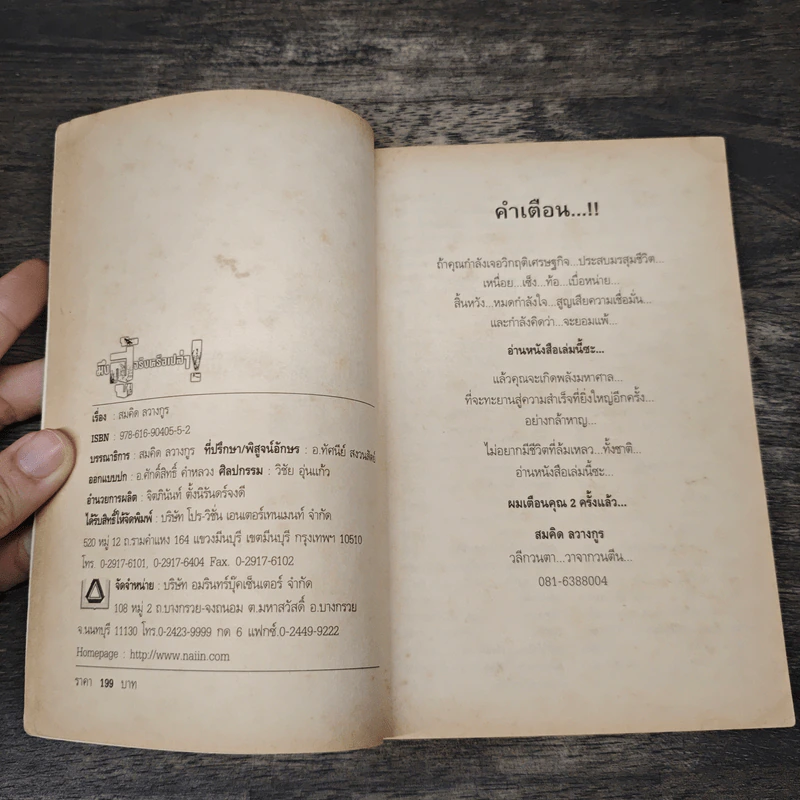 เรื่อง : สมคิด ลวางกูร
ISBN : 978-616-90405-5-2
บรรณาธิการ : สมคิด ลวางกูร ที่ปรึกษา/พิสูจน์อักษร : อ.ทัศนีย์ สงวนสัตย์
ออกแบบปก : อ.ศักดิ์สิทธิ์ คำหลวง ศิลปกรรม : วิชัย อุ่นแก้ว
อำนวยการผลิต : จิตภินันท์ ตั้งนิรันดร์จงดี
ได้รับสิทธิ์ให้จัดพิมพ์ : บริษัท โปร-วิชั่น เอนเตอร์เทนเมนท์ จำกัด
520 หมู่ 12 ถ.รามคำแหง 164 แขวงมีนบุรี เขตมีนบุรี กรุงเทพฯ 10510
โทร. 0-2917-6101, 0-2917-6404 Fax. 0-2917-6102
จัดจำหน่าย : บริษัท อมรินทร์บุ๊คเซ็นเตอร์ จำกัด
108 หมู่ 2 ถ.บางกรวย-จงถนอม ต.มหาสวัสดิ์ อ.บางกรวย
จ.นนทบุรี 11130 โทร.0-2423-9999 กด 6 แฟกซ์.0-2449-9222
Homepage : http://www.naiin.com
ราคา 199 บาท
คำเตือน...!!
ถ้าคุณกำลังเจอวิกฤติเศรษฐกิจ...ประสบมรสุมชีวิต...
เหนื่อย...เซ็ง...ท้อ...เบื่อหน่าย...
สิ้นหวัง...หมดกำลังใจ...สูญเสียความเชื่อมั่น...
และกำลังคิดว่า...จะยอมแพ้...
อ่านหนังสือเล่มนี้ซะ...
แล้วคุณจะเกิดพลังมหาศาล...
ที่จะทะยานสู่ความสำเร็จที่ยิ่งใหญ่อีกครั้ง...
อย่างกล้าหาญ...
ไม่อยากมีชีวิตที่ล้มเหลว...ทั้งชาติ...
อ่านหนังสือเล่มนี้ซะ...
ผมเตือนคุณ 2 ครั้งแล้ว...
สมคิด ลวางกูร
วลีกวนตา...วาจากวนตีน...
081-6388004